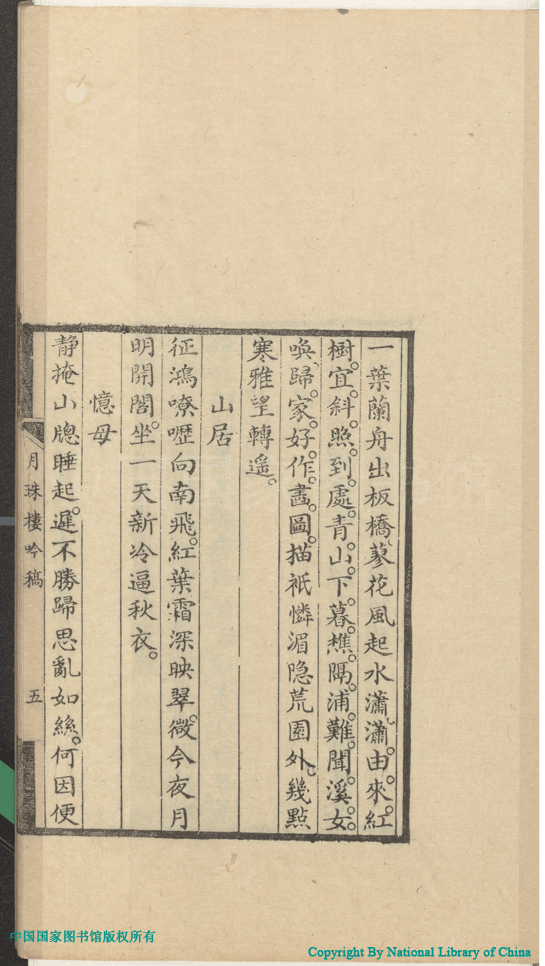 一葉蘭舟出板橋蓼花風起水瀟瀟由來紅
樹宜斜照到處青山下暮樵隔浦難聞溪女
喚歸家好作畵圖描祇憐湄隐荒園外幾點
寒雅望轉遥
山居
征鴻嘹嚦向南飛紅葉霜深映翠微今夜月
明開閣坐一天新冷逼秋衣
憶母
静掩山牕睡起遲不勝歸思亂如絲何因便
月珠樓吟稿 五
中国国家图书馆版权所有
Copyright By National Library of China